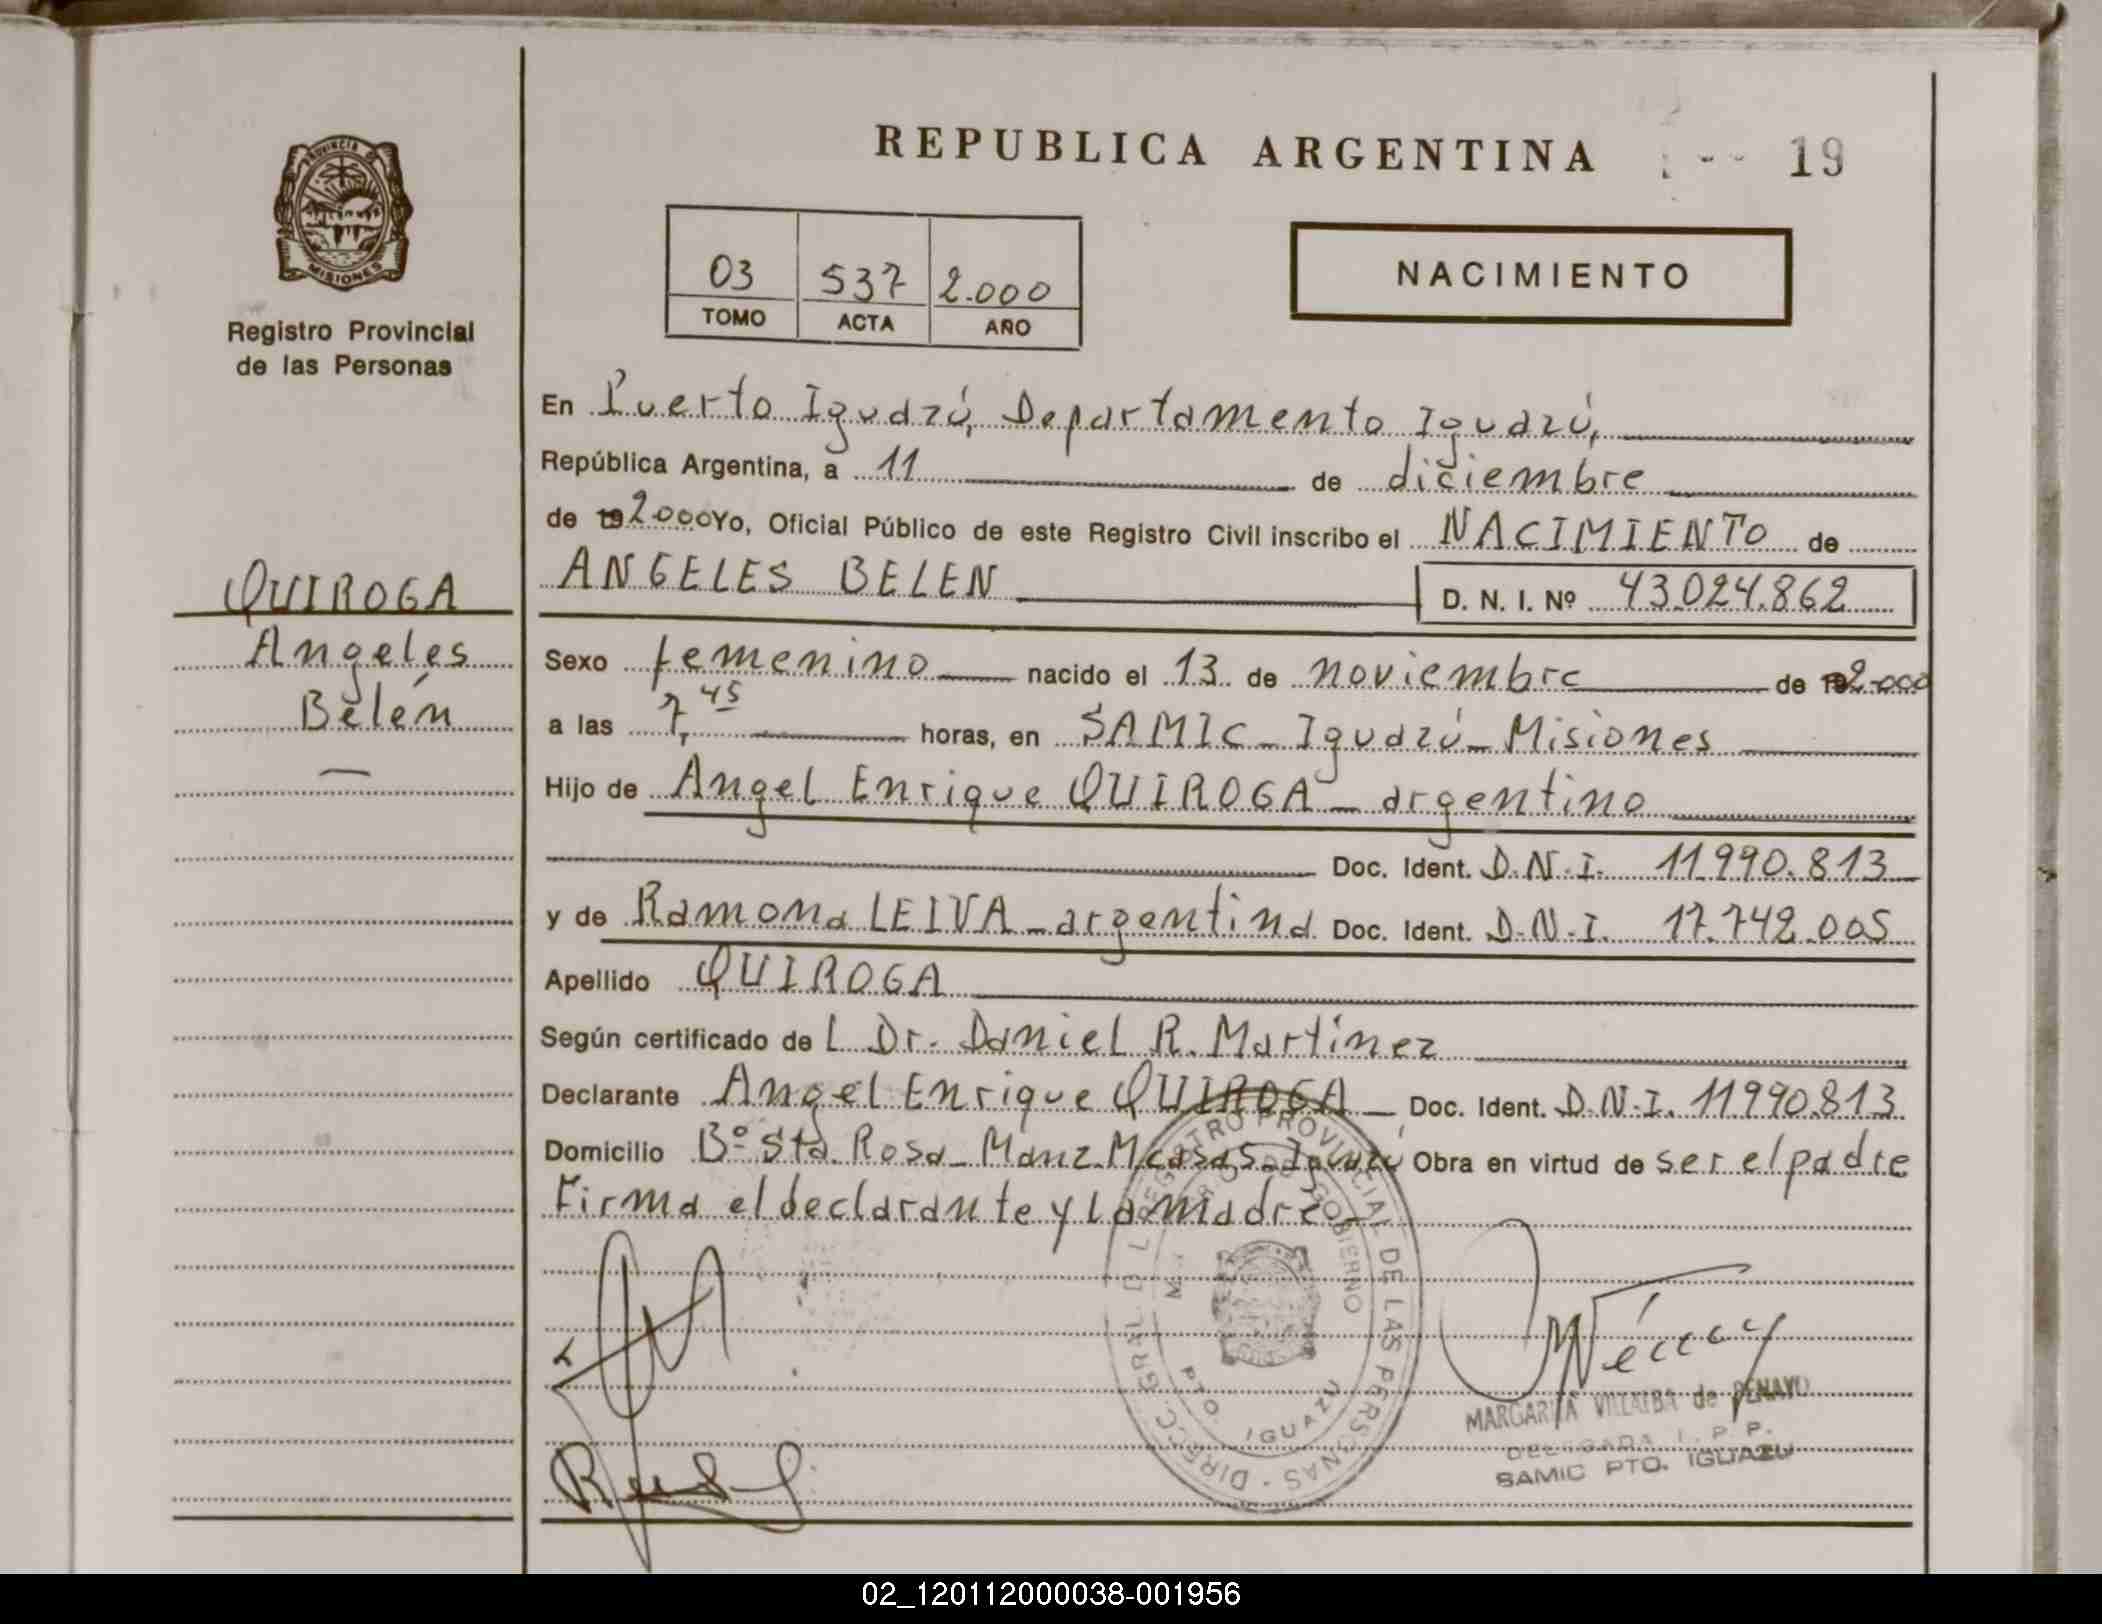 REPUBLICA ARGENTINA
19
PROVINCIA DE
MISIONES
Registro Provincial
de las Personas
03 537 2.000
TOMO ACTA AÑO
NACIMIENTO
En Puerto Iguazú, Departamento Iguazú,
República Argentina, a 11 de diciembre
de 19 2000 Yo, Oficial Público de este Registro Civil inscribo el NACIMIENTO de
ANGELES BELEN D. N. I. Nº 43.024.862
QUIROGA
Angeles
Belén
Sexo femenino nacido el 13 de noviembre de 19 2.000
a las 7,45 horas, en SAMIC - Iguazú - Misiones
Hijo de Angel Enrique QUIROGA - argentino
Doc. Ident. D.N.I. 11.990.813
y de Ramona LEIVA - argentina Doc. Ident. D.N.I. 17.742.005
Apellido QUIROGA
Según certificado de L Dr. Daniel R. Martínez
Declarante Angel Enrique QUIROGA - Doc. Ident. D.N.I. 11990.813
Domicilio Bº Sta. Rosa - Manz. M casa 5 - Iguazú Obra en virtud de ser el padre
Firma el declarante y la madre -
DIREC. GRAL. DEL REGISTRO PROVINCIAL DE LAS PERSONAS
GOBIERNO
PTO. IGUAZU
MARGARITA VILLALBA de PENAYO
DELEGADA I. P. P.
SAMIC PTO. IGUAZU
02_120112000038-001956